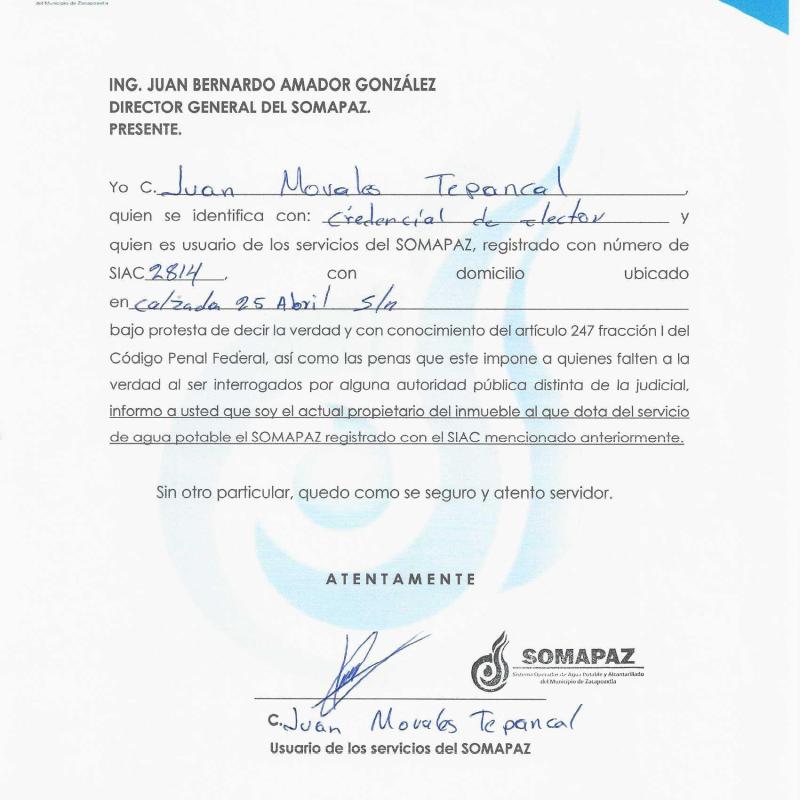 del Municipio de Zacapoaxtla
ING. JUAN BERNARDO AMADOR GONZÁLEZ
DIRECTOR GENERAL DEL SOMAPAZ.
PRESENTE.
Yo C. Juan Morales Tepancal,
quien se identifica con: credencial de elector y
quien es usuario de los servicios del SOMAPAZ, registrado con número de
SIAC 2814, con domicilio ubicado
en calzada 25 Abril S/n
bajo protesta de decir la verdad y con conocimiento del artículo 247 fracción I del
Código Penal Federal, así como las penas que este impone a quienes falten a la
verdad al ser interrogados por alguna autoridad pública distinta de la judicial,
informo a usted que soy el actual propietario del inmueble al que dota del servicio
de agua potable el SOMAPAZ registrado con el SIAC mencionado anteriormente.
Sin otro particular, quedo como se seguro y atento servidor.
ATENTAMENTE
SOMAPAZ
Sistema Operador de Agua Potable y Alcantarillado
del Municipio de Zacapoaxtla
C. Juan Morales Tepancal
Usuario de los servicios del SOMAPAZ